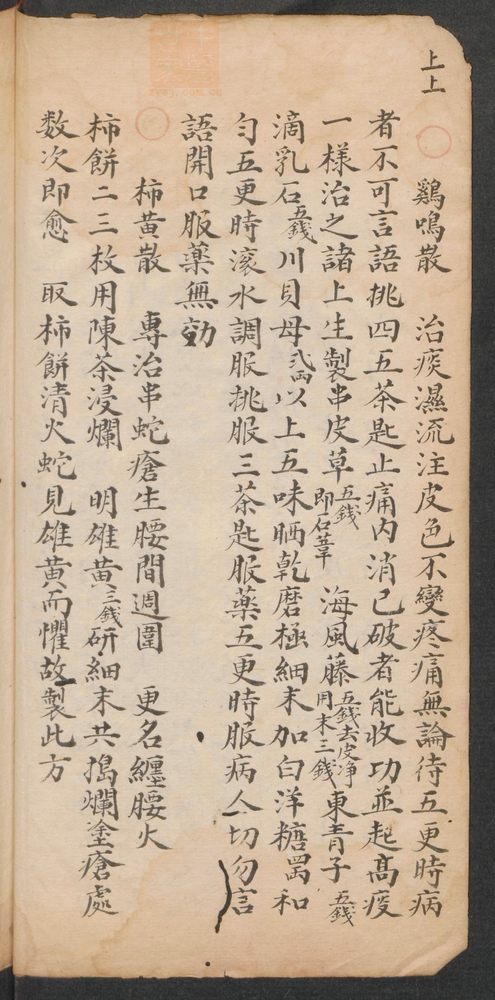 上上
鷄鳴散　治痰濕流注皮色不變疼痛無論待五更時病
者不可言語挑四五茶匙止痛內消已破者能收功並起高疫
一様治之諸上生製串皮草五錢即石葦　海風藤五錢去皮净用末三錢東青子五錢
滴乳石五錢川貝母弍兩以上五味晒乾磨極細末加白洋糖爲和
勻五更時滚水調服挑服三茶匙服藥五更時服病人切勿言
語開口服藥無効
柿黄散　專治串蛇瘡生腰間週圍　更名纏腰火
柿餅二三枚用陳茶浸爛　明雄黄三錢研細末共搗爛塗瘡處
数次即愈　取柿餅清火蛇見雄黄而懼故製此方